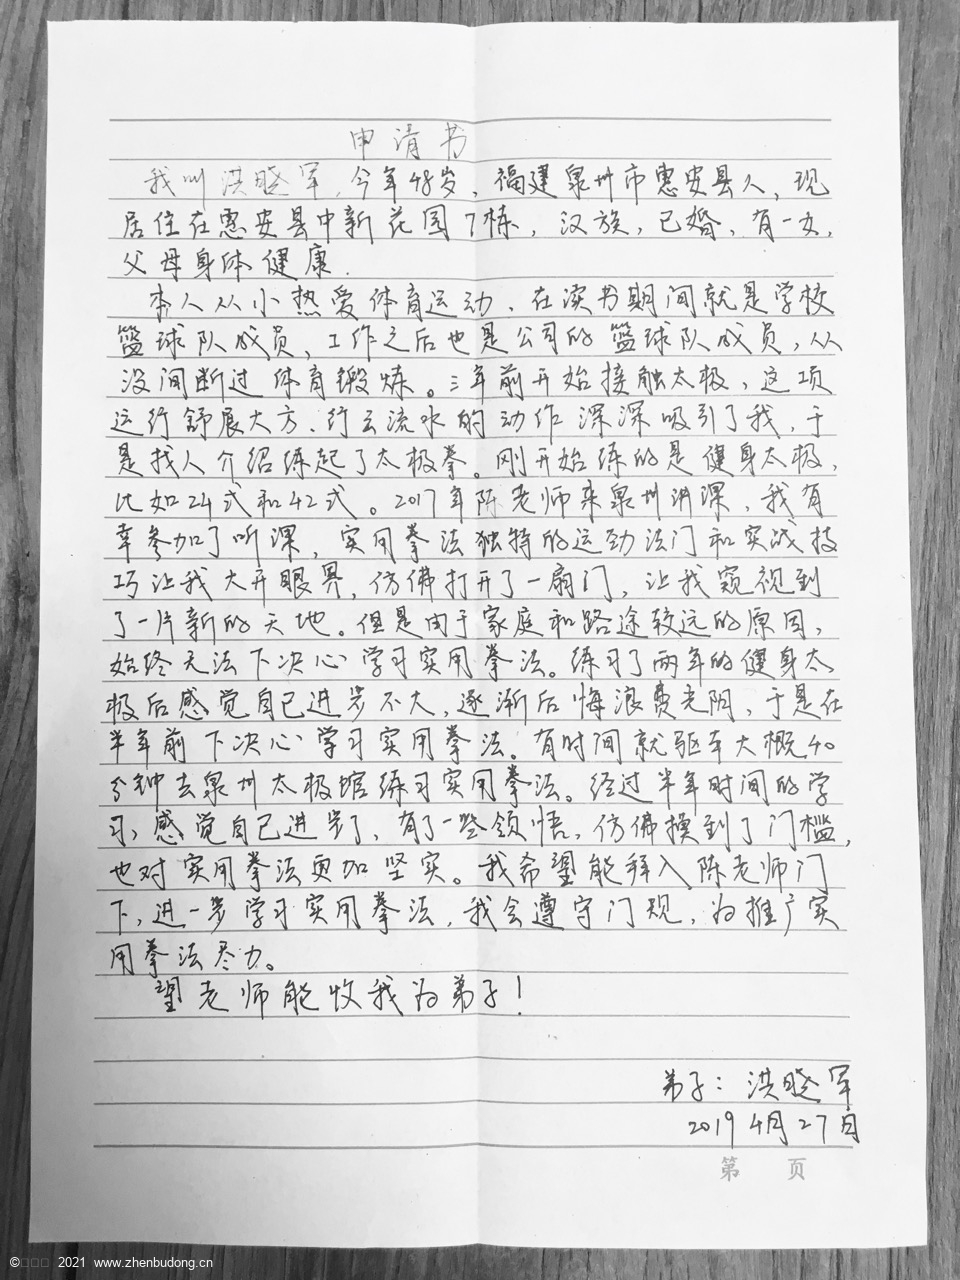 申请书
我叫洪晓军，今年48岁，福建泉州市惠安县人，现
居住在惠安县中新花园7栋，汉族，已婚，有一女，
父母身体健康.
本人从小热爱体育运动，在读书期间就是学校
篮球队成员，工作之后也是公司的篮球队成员，从
没间断过体育锻炼。三年前开始接触太极，这项
运行舒展大方、行云流水的动作深深吸引了我，于
是找人介绍练起了太极拳。刚开始练的是健身太极，
比如24式和42式。2017年陈老师来泉州讲课，我有
幸参加了听课，实用拳法独特的运劲法门和实战技
巧让我大开眼界，仿佛打开了一扇门，让我窥视到
了一片新的天地。但是由于家庭和路途较远的原因，
始终无法下决心学习实用拳法。练习了两年的健身太
极后感觉自己进步不大，逐渐后悔浪费光阴，于是在
半年前下决心学习实用拳法。有时间就驱车大概40
分钟去泉州太极馆练习实用拳法。经过半年时间的学
习，感觉自己进步了，有了一些领悟，仿佛摸到了门槛，
也对实用拳法更加坚实。我希望能拜入陈老师门
下，进一步学习实用拳法，我会遵守门规，为推广实
用拳法尽力。
望老师能收我为弟子！
弟子：洪晓军
2019 4月27日
第 页
© 2021 www.zhenbudong.cn